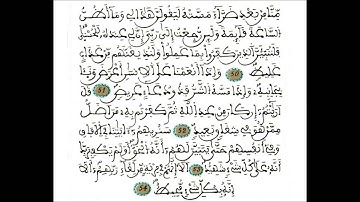 مِّنَّا مِنۢ بَعْدِ ضَرَّآءَ مَسَّتْهُ لَيَقُولَنَّ هَٰذَا لِے وَمَآ أَظُنُّ
اُ۬لسَّاعَةَ قَآئِمَةً وَلَئِن رُّجِعْتُ إِلَىٰ رَبِّيَ إِنَّ لِے عِندَهُۥ لَلْحُسْنَىٰ
فَلَنُنَبِّئَنَّ اَ۬لذِينَ كَفَرُوا۟ بِمَا عَمِلُوا۟ وَلَنُذِيقَنَّهُم مِّنْ عَذَابٍ
غَلِيظٍ 50 وَإِذَآ أَنْعَمْنَا عَلَى اَ۬لِانسَٰنِ أَعْرَضَ وَنَـَٔا
بِجَانِبِهِۦ وَإِذَا مَسَّهُ اُ۬لشَّرُّ فَذُو دُعَآءٍ عَرِيضٍ 51 قُلَ
اَرَٰٓيْتُمُۥٓ إِن كَانَ مِنْ عِندِ اِ۬للَّهِ ثُمَّ كَفَرْتُم بِهِۦ مَنَ اَضَلُّ
مِمَّنْ هُوَ فِے شِقَاقٍ بَعِيدٍ 52 سَنُرِيهِمُۥٓ ءَايَٰتِنَا فِے اِ۬لَافَاقِ
وَفِےٓ أَنفُسِهِمْ حَتَّىٰ يَتَبَيَّنَ لَهُمُۥٓ أَنَّهُ اُ۬لْحَقُّ أَوَلَمْ يَكْفِ بِرَبِّكَ
أَنَّهُۥ عَلَىٰ كُلِّ شَےْءٍ شَهِيدٌ 53 أَلَآ إِنَّهُمْ فِے مِرْيَةٍ مِّن لِّقَآءِ رَبِّهِمُۥٓ أَلَآ
إِنَّهُۥ بِكُلِّ شَےْءٍ مُّحِيطٌ 54